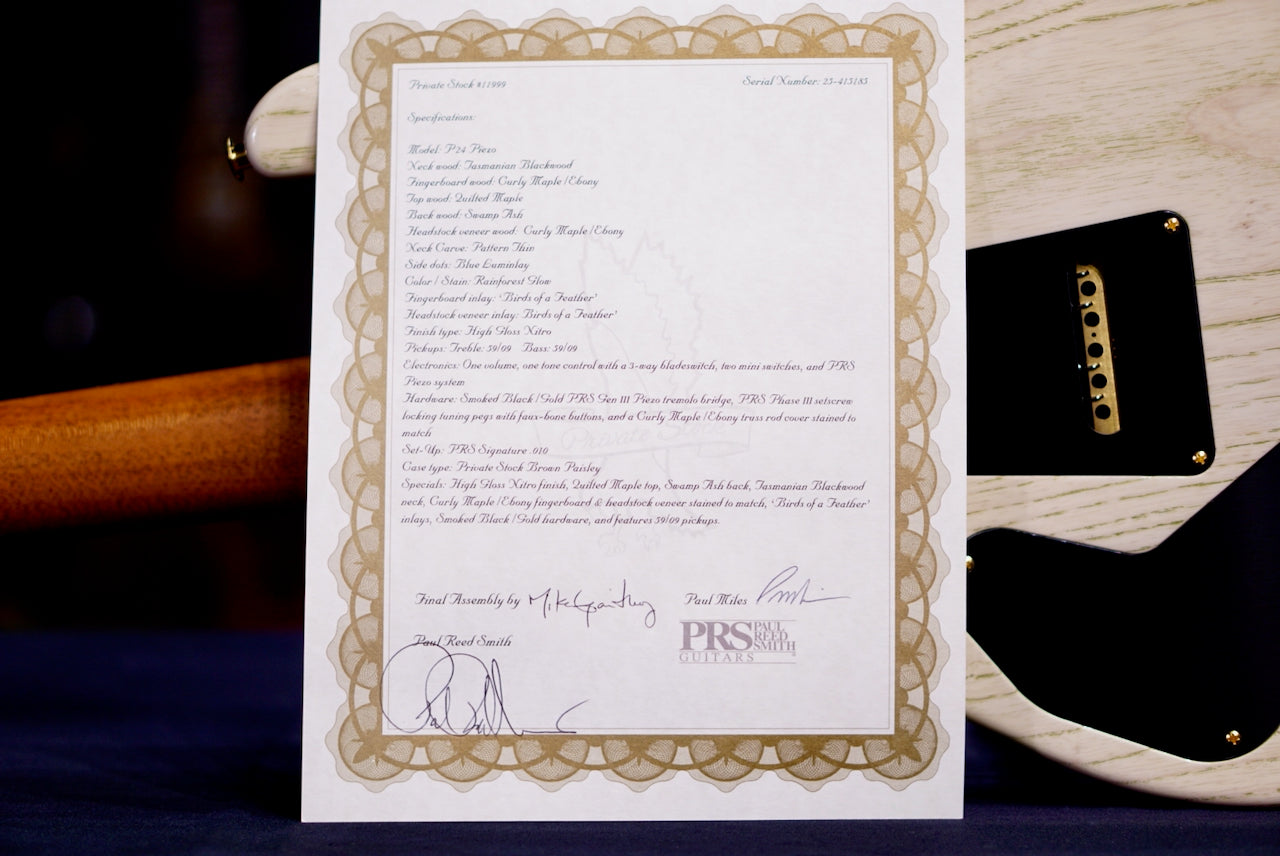 Private Stock #11999
Serial Number: 25-415185
Specifications:
Model: P24 Piezo
Neck wood: Tasmanian Blackwood
Fingerboard wood: Curly Maple/Ebony
Top wood: Quilted Maple
Back wood: Swamp Ash
Headstock veneer wood: Curly Maple/Ebony
Neck Carve: Pattern Thin
Side dots: Blue Luminlay
Color / Stain: Rainforest Glow
Fingerboard inlay: 'Birds of a Feather'
Headstock veneer inlay: 'Birds of a Feather'
Finish type: High Gloss Nitro
Pickups: Treble: 59/09 Bass: 59/09
Electronics: One volume, one tone control with a 3-way bladeswitch, two mini switches, and PRS
Piezo system
Hardware: Smoked Black/Gold PRS Gen III Piezo tremolo bridge, PRS Phase III setscrew
locking tuning pegs with faux-bone buttons, and a Curly Maple/Ebony truss rod cover stained to
match
Private Stock
Set-Up: PRS Signature .010
Case type: Private Stock Brown Paisley
Specials: High Gloss Nitro finish, Quilted Maple top, Swamp Ash back, Tasmanian Blackwood
neck, Curly Maple/Ebony fingerboard & headstock veneer stained to match, 'Birds of a Feather'
inlays, Smoked Black/Gold hardware, and features 59/09 pickups.
Final Assembly by
Paul Miles
Paul Reed Smith
PRS PAUL REED SMITH
GUITARS